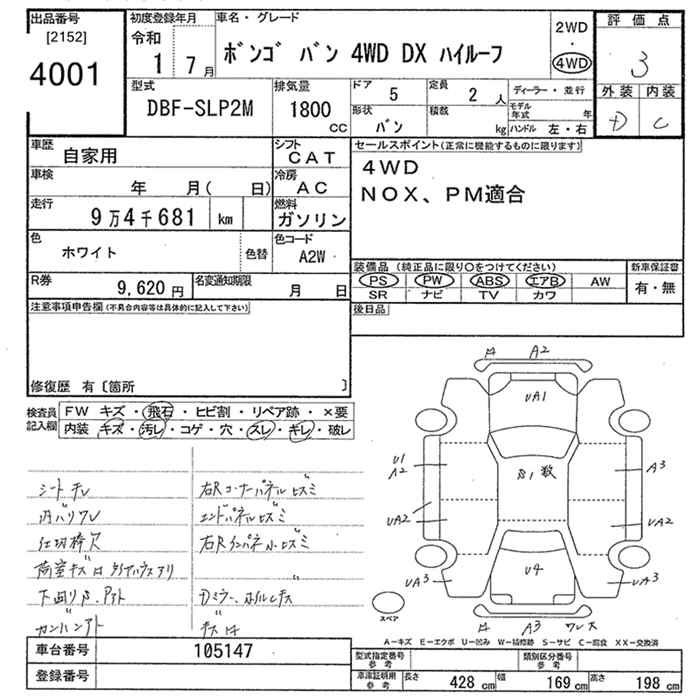 出品番号 初度登録年月 車名・グレード 2WD 評価点
[2152] 令和 ・
4001 1 7月 ボンゴ バン 4WD DX ハイルーフ 4WD 3
型式 排気量 ドア 5 定員 2人 ディーラー・並行 外装 内装
DBF-SLP2M 1800 cc 形状 バン 積数 kg モデル年式 年 D C
ハンドル 左・右
車歴 自家用 シフト CAT セールスポイント(正常に機能するものに限ります)
車検 年 月( 日) 冷房 AC 4WD
走行 9万4千681 km 燃料 ガソリン NOX、PM適合
色 ホワイト 色替 色コード A2W
装備品(純正品に限り○をつけてください) 新車保証書
R券 9,620円 名変通知期限 月 日 PS PW ABS エアB AW 有・無
SR ナビ TV カワ
注意事項申告欄(不具合内容等は具体的に記入して下さい) 後日品
修復歴 有〔箇所 〕
検査員記入欄 FW キズ・飛石・ヒビ割・リペア跡・×要
内装 キズ・汚レ・コゲ・穴・スレ・キレ・破レ
A2
UA1
U1
A2 A3
UA2 UA2
UA3 U4 UA3
A3
シートキレ 右Rコーナーパネルヒズミ
内バリワレ エンドパネルヒズミ
下回りサ、
スペア
A-キズ E-エクボ U-凹み W-補修跡 S-サビ C-腐食 XX-交換済
車台番号 105147 型式指定番号 参考 類別区分番号 参考
登録番号 車庫証明用 参考 長さ 428 cm 幅 169 cm 高さ 198 cm